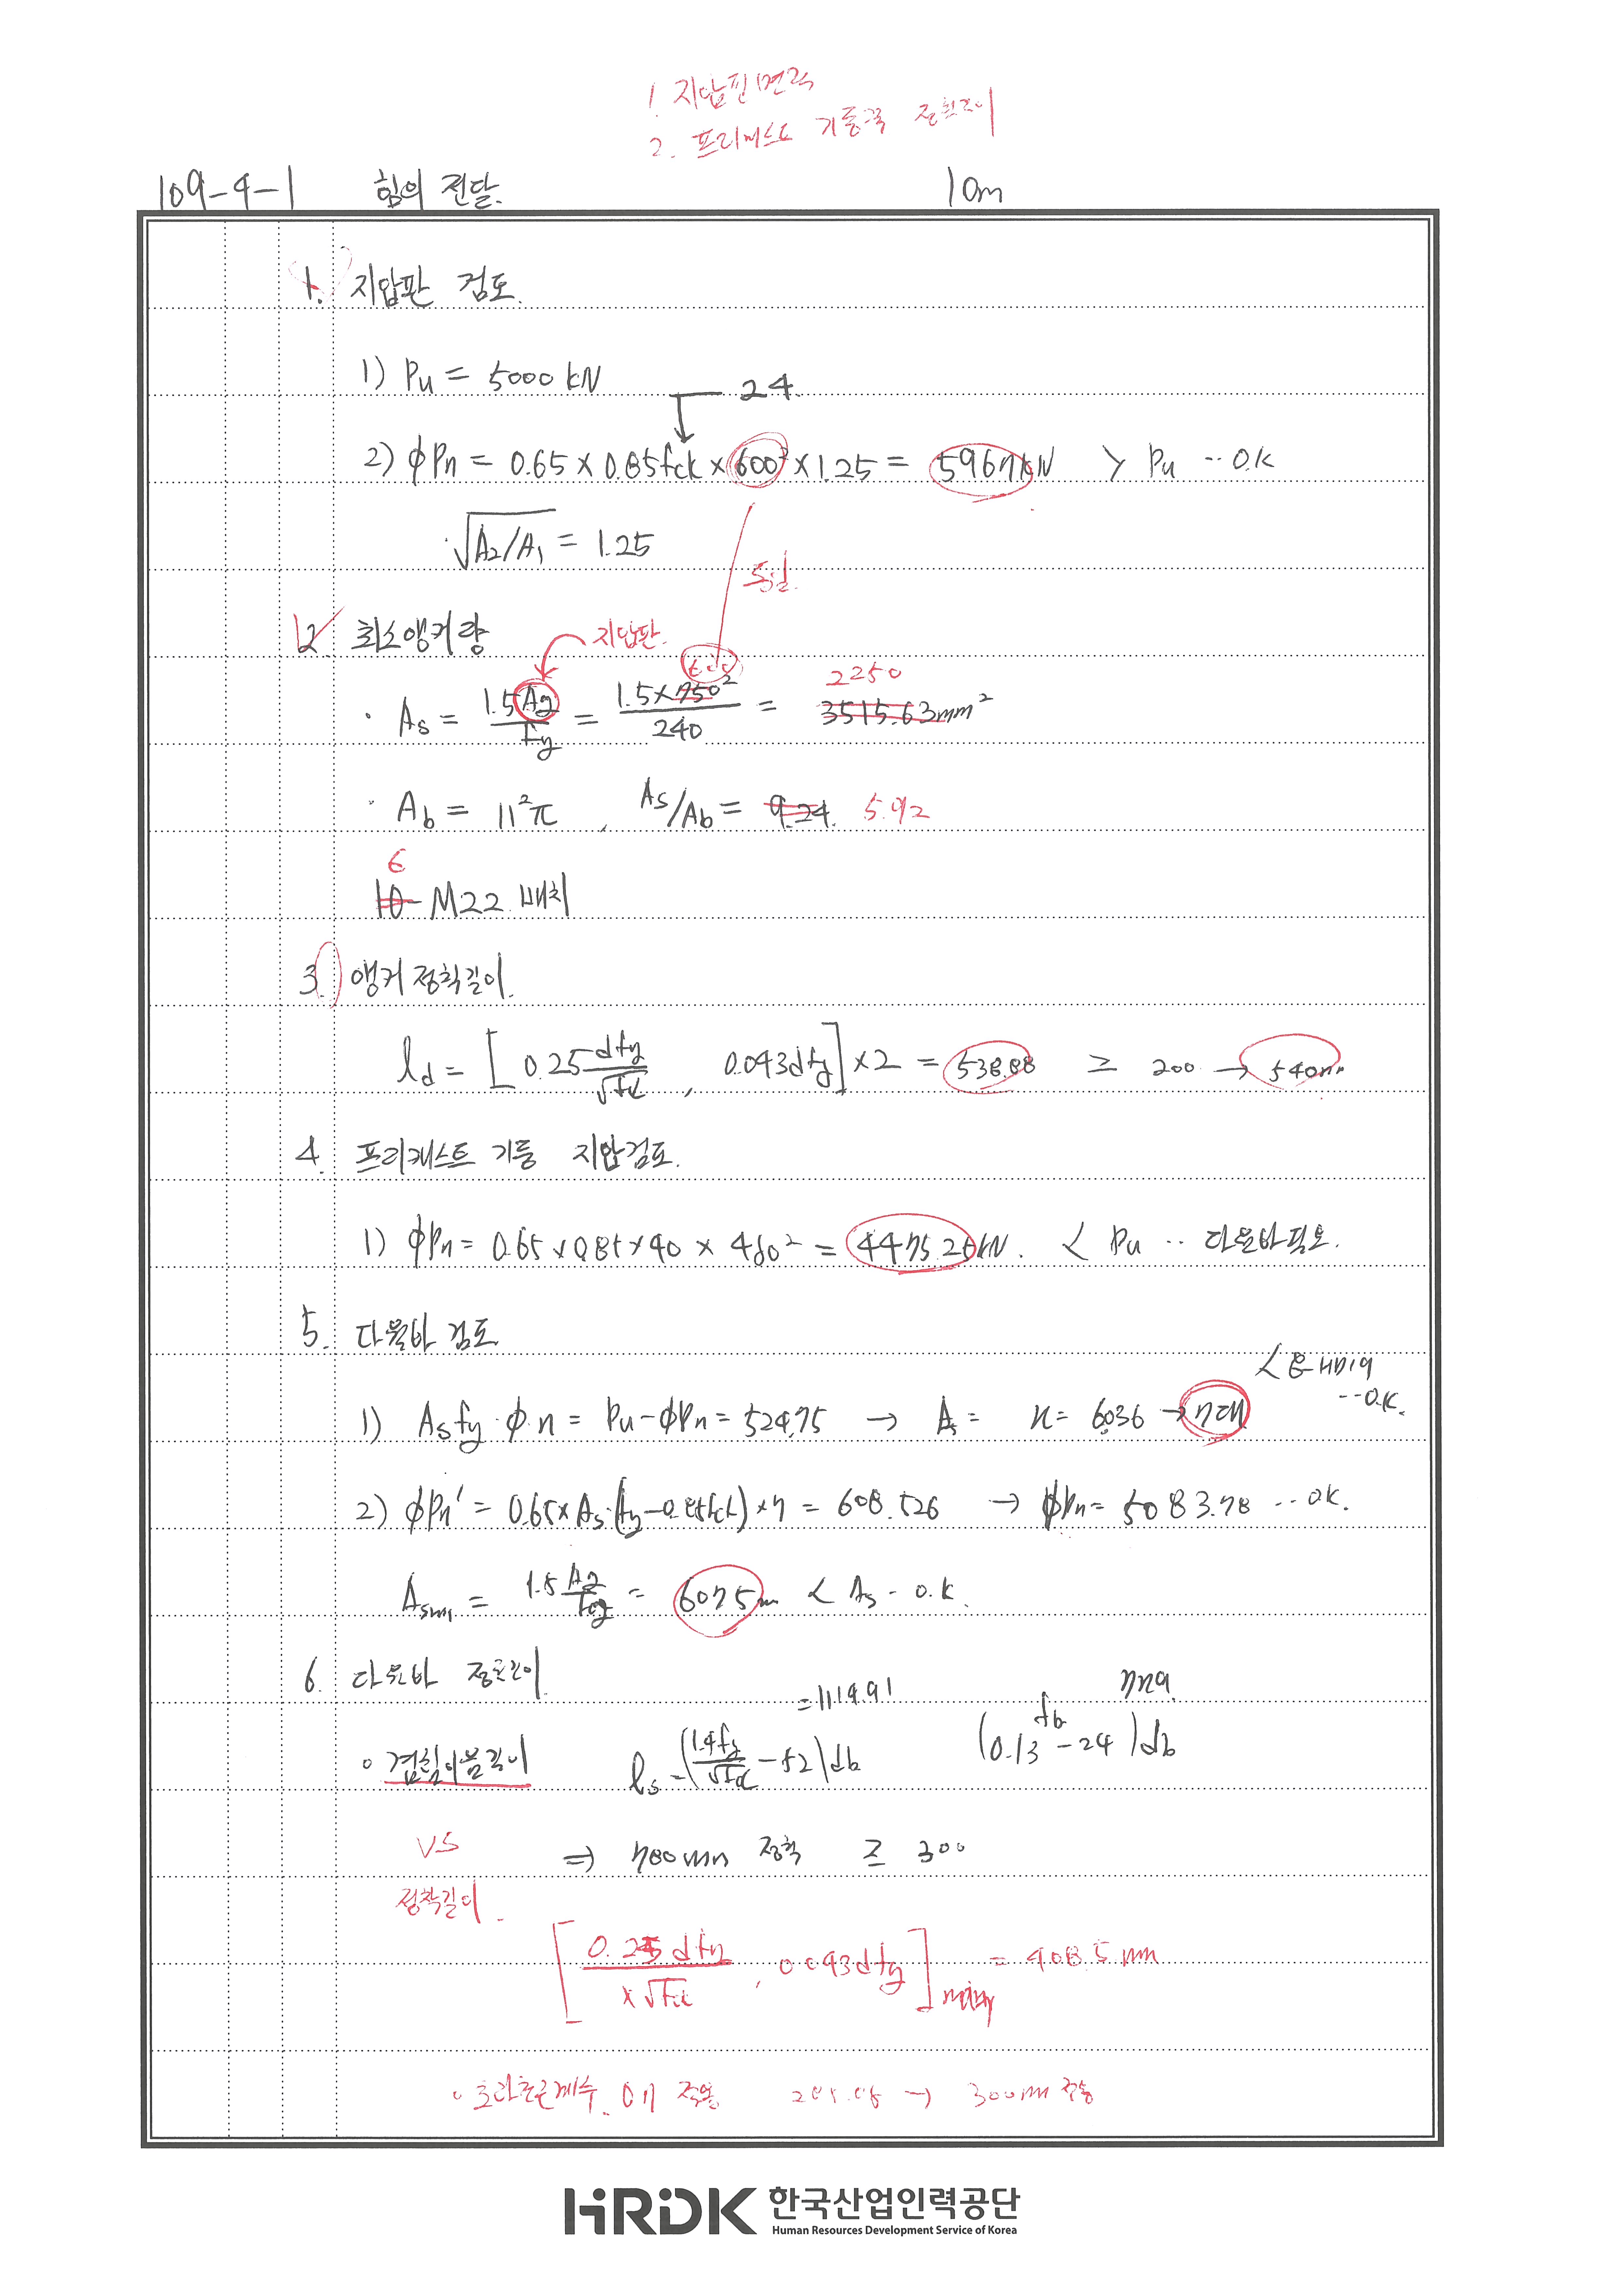 1. 지압판면적
2. 프리캐스트 기둥쪽 정착길이
109-4-1 힘의 전달. 10m
1. 지압판 검토.
1) Pu = 5000 kN
24.
2) ϕPn = 0.65 × 0.85fck × 600² × 1.25 = 5967kN > Pu ‥ O.K
·√A₂/A₁ = 1.25
동일.
2. 최소앵커량
지압판.
· As = 1.5Ag/fy = 1.5×750²/240 = 3515.63mm²
600 2250
· Ab = 11²π , As/Ab = 9.24. 5.92
6
10-M22 배치
3. 앵커 정착길이.
ld = [ 0.25 dfy/√fck , 0.043dfy ] ×2 = 538.88 ≥ 200 → 540mm
4. 프리캐스트 기둥 지압검토.
1) ϕPn = 0.65 × 0.85 × 40 × 450² = 4475.25kN. < Pu ‥ 다웰바 필요.
5. 다웰바 검토
< 8-HD19 ‥O.K.
1) Asfy·ϕ·n = Pu-ϕPn = 524.75 → A = n = 6.036 → 7대
2) ϕPn' = 0.65×As·(fy-0.85fck)×7 = 608.526 → ϕPn = 5083.78 ‥ O.K.
Asmin = 1.5 Ag/fy = 6075m < As - O.K.
6. 다웰바 정착길이.
= 1119.91 779.
◦ 겹침이음길이 ls = (1.4fy/√fck - 52)db (0.13fy - 24)db
VS
⇒ 780mm 정착 ≥ 300
정착길이.
[ 0.25 dfy/λ√fck , 0.043dfy ] = 408.5 mm
300mm 적용
HRDK 한국산업인력공단
Human Resources Development Service of Korea